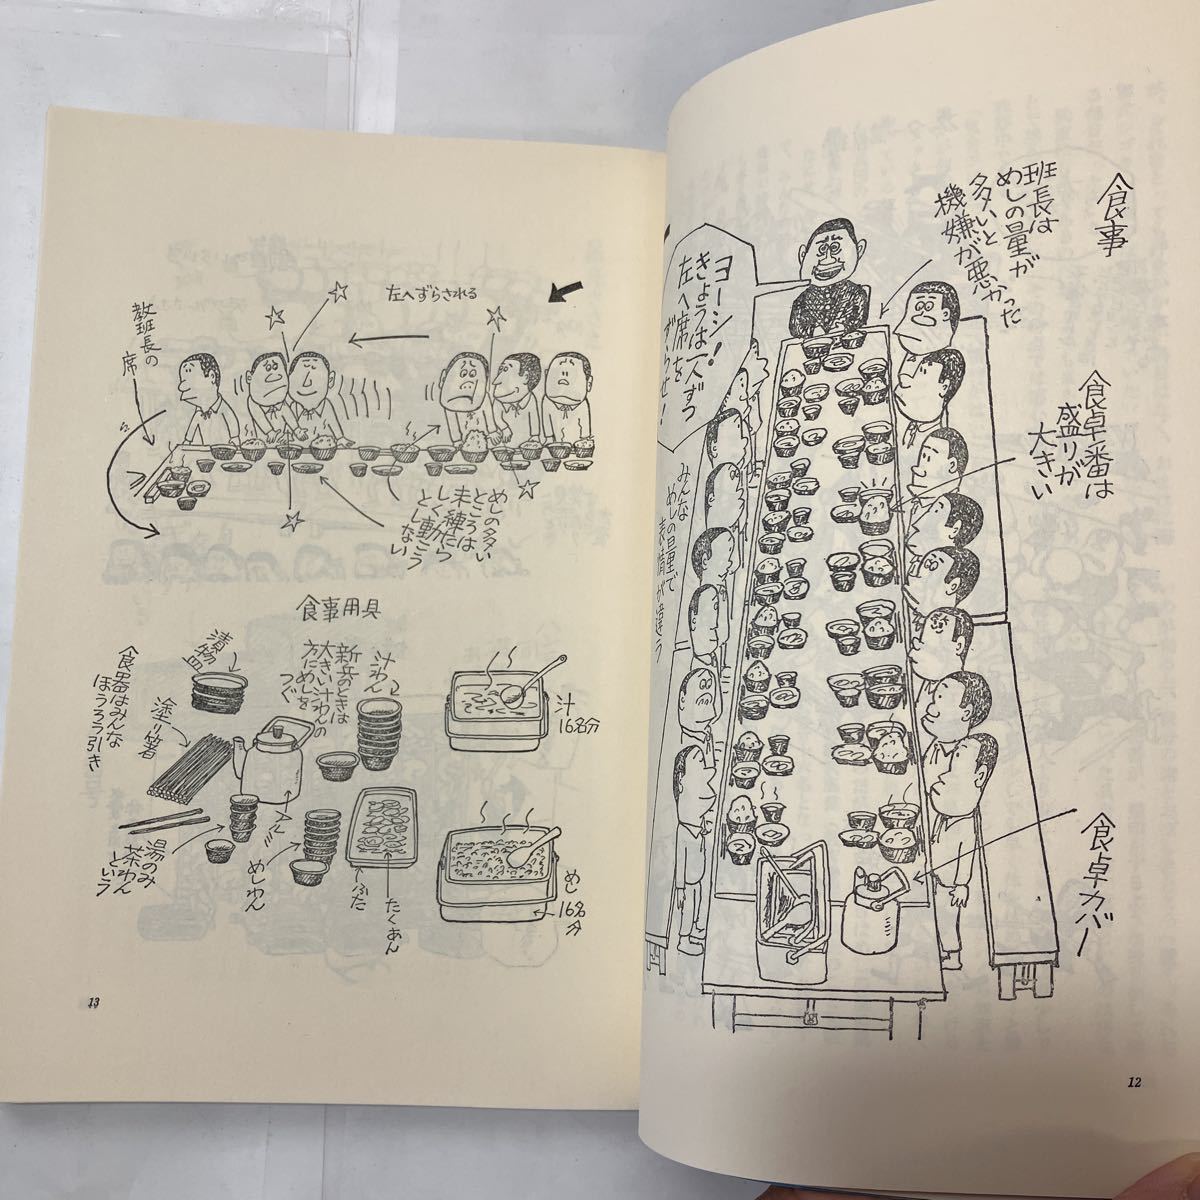 食事
班長は
めしの量が
多いと
機嫌が悪かった
ヨーシ！
きょうは一人ずつ
左へ席を
ずらせ！
食卓番は
盛りが
大きい
みんな
めしの量で
表情が違う
食卓カバー
12
左へずらされる
教班長の
席
めしの多い
ところは
未練たら
しく動こう
としない
食事用具
汁わん
新兵のときは
大きい汁わんの
方にめしを
つぐ
漬物皿
塗り箸
食器はみんな
ほうろう引き
汁
16名分
湯のみ
茶わん
という
めしわん
ふた
たくあん
めし
16名分
13